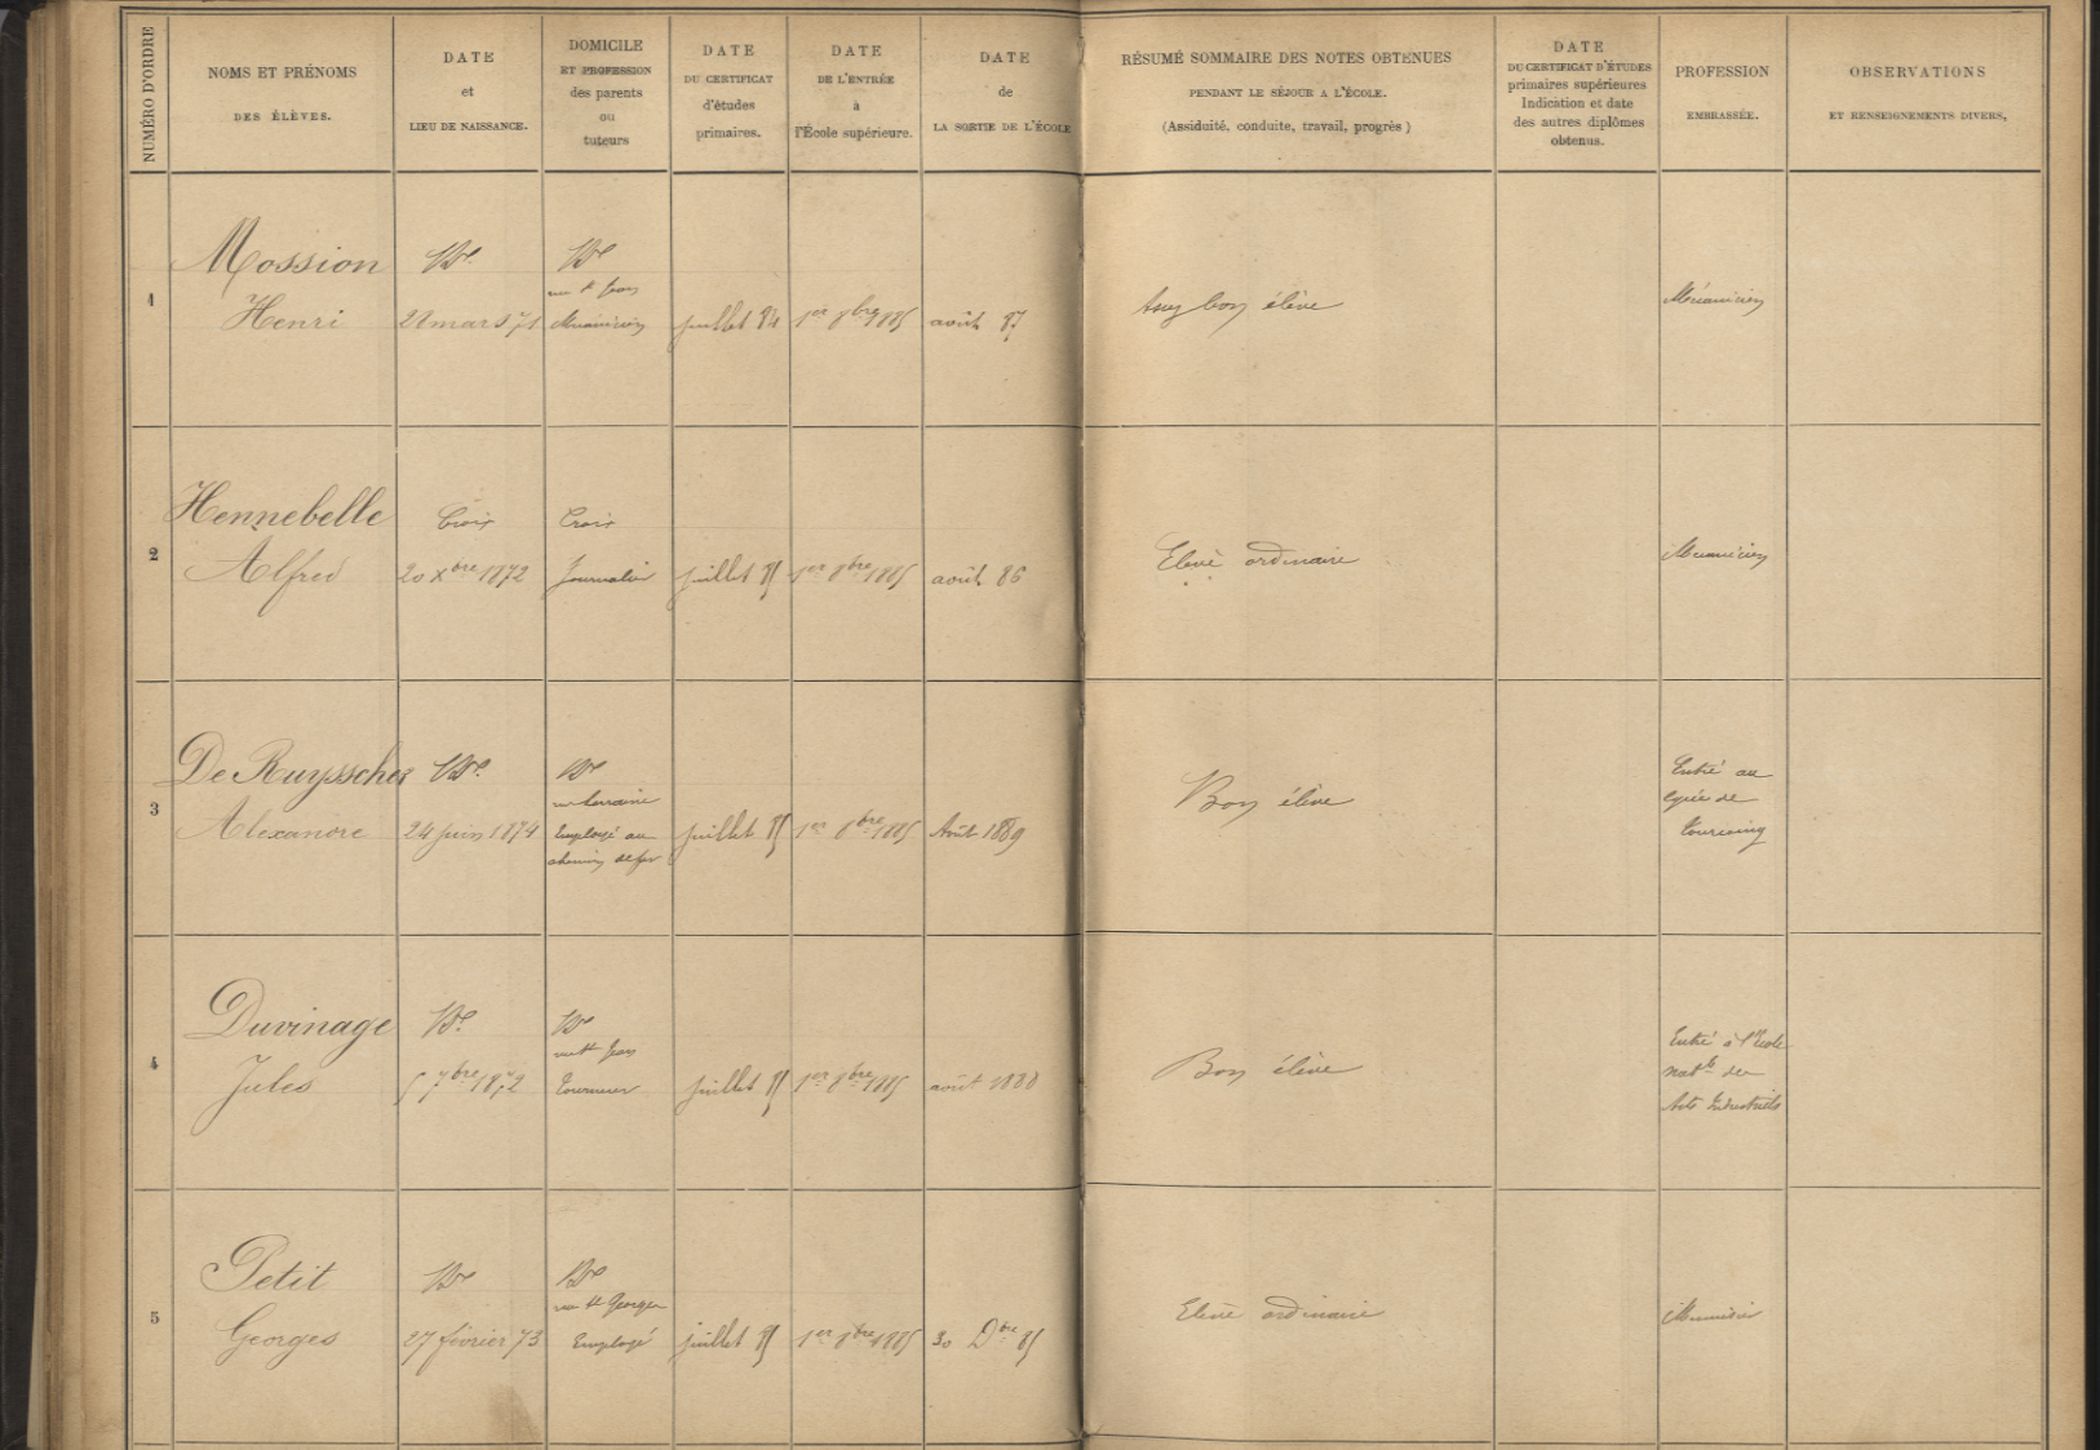 NUMÉRO D'ORDRE
NOMS ET PRÉNOMS
DES ÉLÈVES.
DATE
et
LIEU DE NAISSANCE.
DOMICILE
ET PROFESSION
des parents
ou
tuteurs
DATE
DU CERTIFICAT
d'études
primaires.
DATE
DE L'ENTRÉE
à
l'École supérieure.
DATE
de
LA SORTIE DE L'ÉCOLE
RÉSUMÉ SOMMAIRE DES NOTES OBTENUES
PENDANT LE SÉJOUR A L'ÉCOLE.
(Assiduité, conduite, travail, progrès)
DATE
DU CERTIFICAT D'ÉTUDES
primaires supérieures
Indication et date
des autres diplômes
obtenus.
PROFESSION
EMBRASSÉE.
OBSERVATIONS
ET RENSEIGNEMENTS DIVERS,
1
Mossion
Henri
mars 71
Mécanicien
juillet 84
1er 8bre 1885
août 87
Assez bon élève
Mécanicien
2
Hennebelle
Alfred
Croix
20 Xbre 1872
Croix
Journalier
juillet 85
1er 8bre 1885
août 86
Elève ordinaire
Mécanicien
3
De Ruysscher
Alexandre
24 juin 1874
Employé au
chemin de fer
juillet 85
1er 8bre 1885
Août 1889
Bon élève
Entré au
lycée de
Tourcoing
4
Duvinage
Jules
5 7bre 1872
rue St Jean
Tourneur
juillet 85
1er 8bre 1885
août 1888
Bon élève
Entré à l'Ecole
natle des
Arts Industriels
5
Petit
Georges
27 février 73
rue St Georges
Employé
juillet 85
1er 8bre 1885
30 Dbre 85
Elève ordinaire